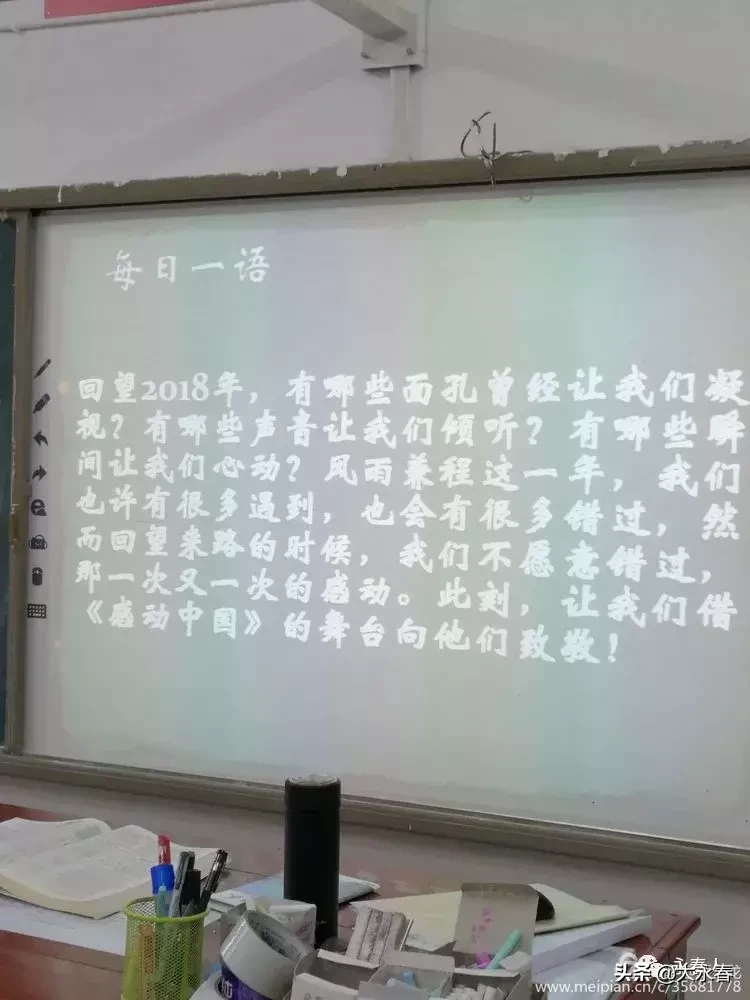 每日一语
回望2018年，有哪些面孔曾经让我们凝
视？有哪些声音让我们倾听？有哪些瞬
间让我们心动？风雨兼程这一年，我们
也许有很多遇到，也会有很多错过，然
而回望来路的时候，我们不愿意错过，
那一次又一次的感动。此刻，让我们借
《感动中国》的舞台向他们致敬！
头条
www.meipian.cn/c/35681778